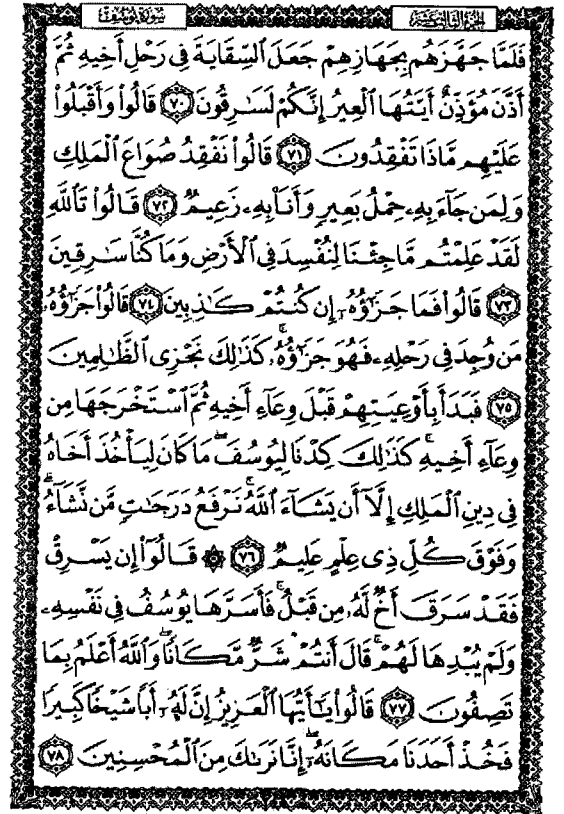 سورة يوسف
الجزء الثالث عشر
فَلَمَّا جَهَّزَهُم بِجَهَازِهِمْ جَعَلَ ٱلسِّقَايَةَ فِى رَحْلِ أَخِيهِ ثُمَّ
أَذَّنَ مُؤَذِّنٌ أَيَّتُهَا ٱلْعِيرُ إِنَّكُمْ لَسَٰرِقُونَ ٧٠ قَالُوا۟ وَأَقْبَلُوا۟
عَلَيْهِم مَّاذَا تَفْقِدُونَ ٧١ قَالُوا۟ نَفْقِدُ صُوَاعَ ٱلْمَلِكِ
وَلِمَن جَآءَ بِهِۦ حِمْلُ بَعِيرٍ وَأَنَا۠ بِهِۦ زَعِيمٌ ٧٢ قَالُوا۟ تَٱللَّهِ
لَقَدْ عَلِمْتُم مَّا جِئْنَا لِنُفْسِدَ فِى ٱلْأَرْضِ وَمَا كُنَّا سَٰرِقِينَ
٧٣ قَالُوا۟ فَمَا جَزَٰٓؤُهُۥٓ إِن كُنتُمْ كَٰذِبِينَ ٧٤ قَالُوا۟ جَزَٰٓؤُهُۥ
مَن وُجِدَ فِى رَحْلِهِۦ فَهُوَ جَزَٰٓؤُهُۥ ۚ كَذَٰلِكَ نَجْزِى ٱلظَّٰلِمِينَ
٧٥ فَبَدَأَ بِأَوْعِيَتِهِمْ قَبْلَ وِعَآءِ أَخِيهِ ثُمَّ ٱسْتَخْرَجَهَا مِن
وِعَآءِ أَخِيهِ ۚ كَذَٰلِكَ كِدْنَا لِيُوسُفَ ۖ مَا كَانَ لِيَأْخُذَ أَخَاهُ
فِى دِينِ ٱلْمَلِكِ إِلَّآ أَن يَشَآءَ ٱللَّهُ ۚ نَرْفَعُ دَرَجَٰتٍ مَّن نَّشَآءُ ۗ
وَفَوْقَ كُلِّ ذِى عِلْمٍ عَلِيمٌ ٧٦ ۞ قَالُوٓا۟ إِن يَسْرِقْ
فَقَدْ سَرَقَ أَخٌ لَّهُۥ مِن قَبْلُ ۚ فَأَسَرَّهَا يُوسُفُ فِى نَفْسِهِۦ
وَلَمْ يُبْدِهَا لَهُمْ ۚ قَالَ أَنتُمْ شَرٌّ مَّكَانًا ۖ وَٱللَّهُ أَعْلَمُ بِمَا
تَصِفُونَ ٧٧ قَالُوا۟ يَٰٓأَيُّهَا ٱلْعَزِيزُ إِنَّ لَهُۥٓ أَبًا شَيْخًا كَبِيرًا
فَخُذْ أَحَدَنَا مَكَانَهُۥٓ ۖ إِنَّا نَرَىٰكَ مِنَ ٱلْمُحْسِنِينَ ٧٨